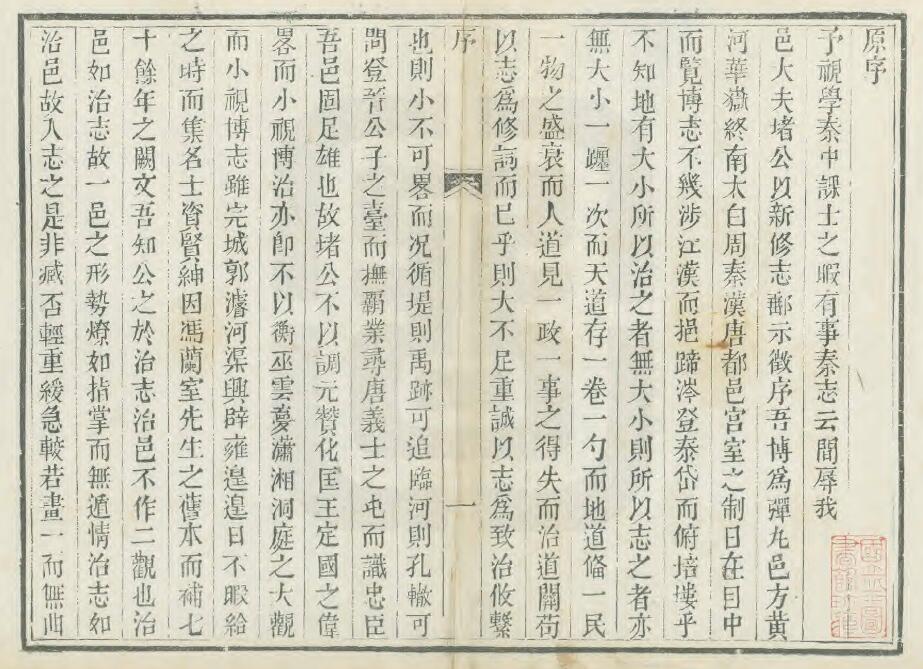 原序
予視學秦中課士之暇有事秦志云間辱我
邑大夫堵公以新修志郵示徵序吾博爲彈丸邑方黃
河華嶽終南太白周秦漢唐都邑宮室之制日在目中
而覽博志不幾涉江漢而挹蹄涔登泰岱而俯培塿乎
不知地有大小所以治之者無大小則所以志之者亦
無大小一躔一次而天道存一卷一勺而地道備一民
一物之盛衰而人道見一政一事之得失而治道關苟
以志爲修詞而已乎則大不足重誠以志爲致治攸繫
序 一
也則小不可畧而况循堤則禹跡可追臨河則孔轍可
問登晉公子之臺而撫霸業尋唐義士之屯而識忠臣
吾邑固足雄也故堵公不以調元贊化匡王定國之偉
畧而小視博治亦卽不以衡巫雲夢瀟湘洞庭之大觀
而小視博志雖完城郭濬河渠興辟雍遑遑日不暇給
之時而集名士資賢紳因馮蘭室先生之舊本而補七
十餘年之闕文吾知公之於治志治邑不作二觀也治
邑如治志故一邑之形勢燎如指掌而無遁情治志如
治邑故入志之是非臧否輕重緩急較若畫一而無曲